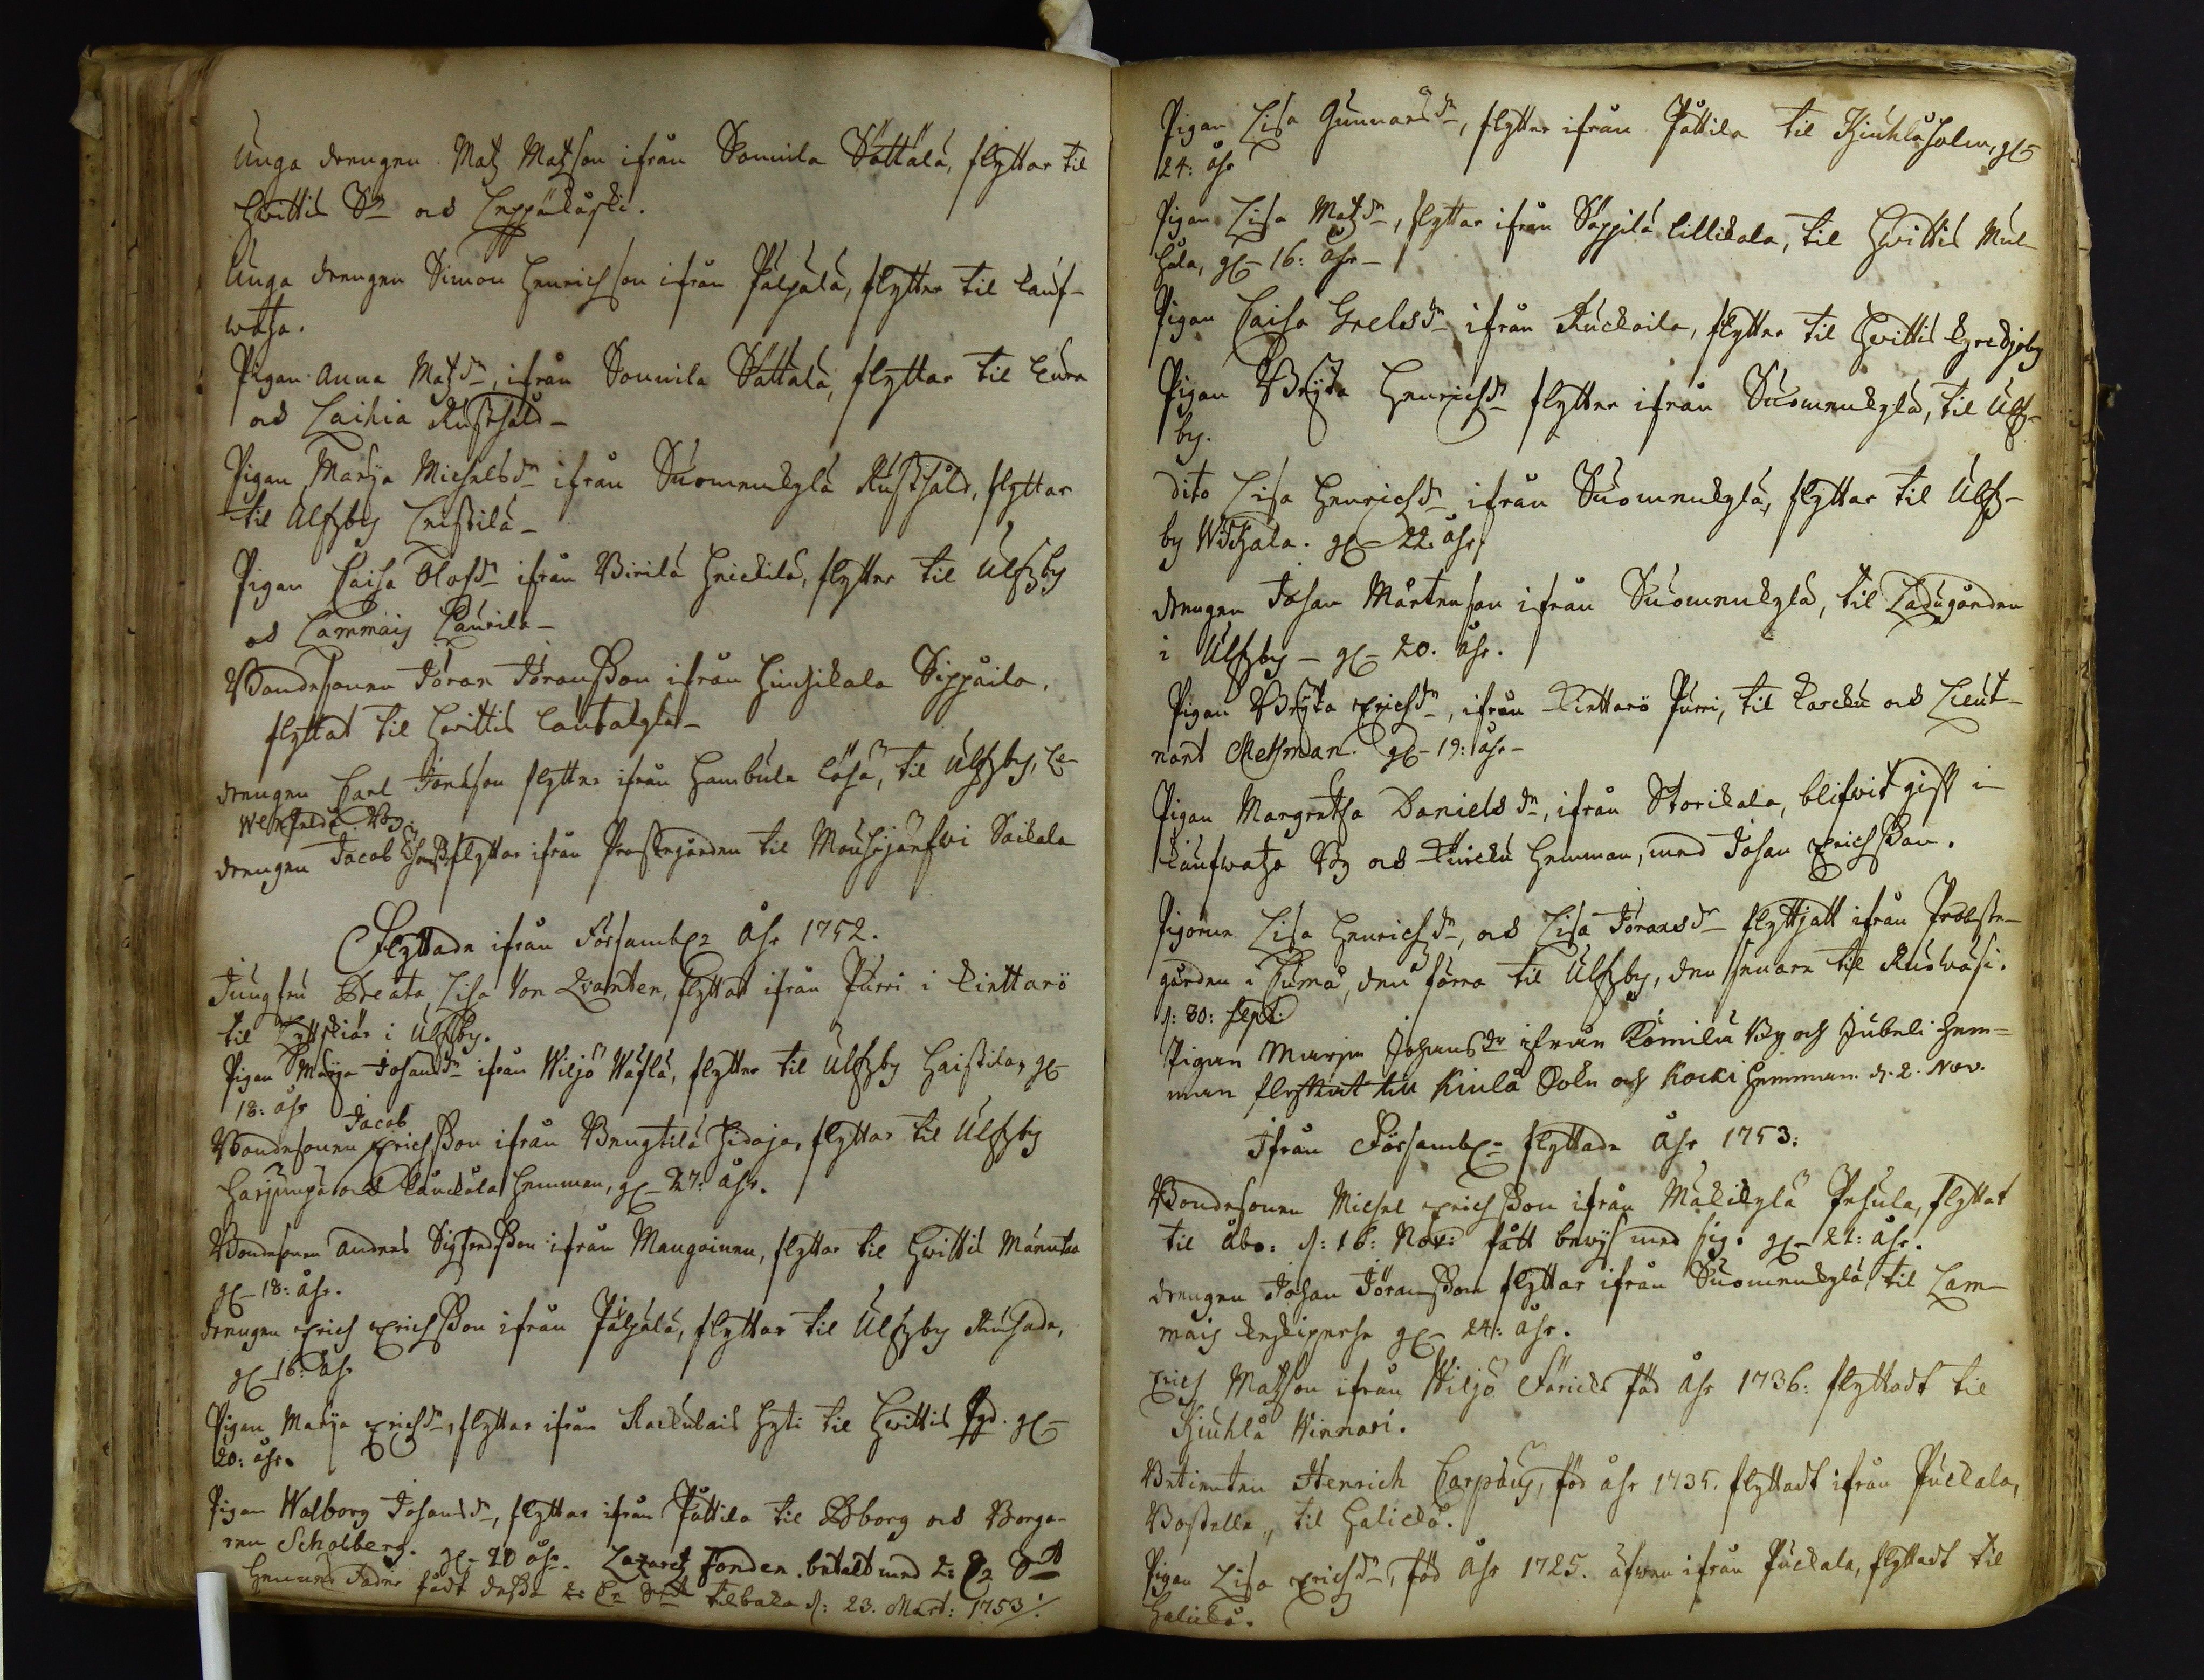 Unga drengen Matz Matzson ifrån Sonnila Sättälä, flyttar til
Hvittis Sn och Leppäkoski.
Unga drengen Simon Henrichson ifrån Päljälä, flyttar til Kauf-
watza.
Pigan Anna Matzdr, ifrån Sonnila Sättälä, flyttar til Eura
och Laihia Rusthåld
Pigan Marja Michelsdr ifrån Suomenkylä Rusthåld, flyttar
til Ulfzby
Pigan Caisa Olofsdr ifrån Birilä Heickilä, flyttar til Ulfzby
och Lammais Laurila
Bondesonen Jöran Jöransson ifrån Hintzikala Sippaila,
flyttat til Hvittis Lautakylä
drengen Carl flyttar ifrån Hambula til Ulfzby,
By.
drengen Jacob flyttar ifrån Prestegården til Mouhijärfvi
Flyttade ifrån Församl: Åhr 1752.
Jungfru Beata Lisa von Qvanten, flyttat ifrån Purri i Kiettarö
til i Ulfsby.
Pigan Marja Johansdr ifrån Wiljo flyttar til Ulfzby Haistila, gl
18: åhr
Jacob
Bondesonen Erichsson ifrån Bengtilä Hidoja, flyttar til Ulfzby
Harjunpä och Hemman, gl 27: Åhr.
Bondesonen Anders Sigfredsson ifrån Mangoinen, flyttar til Hvittis
gl 18: Åhr.
drengen Erich Erichsson ifrån Päljälä, flyttar til Ulfzby
gl 16: Åhr
Pigan Marja Erichsdr, flyttar ifrån Kackulais Hyti til Hvittis gl
20: åhr.
Pigan Walborg Johansdr, flyttar ifrån Pättila til och Borga-
ren Scholberg. gl 20 åhr. Lazaretz Fonden betalt med 2:
Hennes Fader fådt dessa 2: tilbaka d: 23. Mart: 1753
Pigan Lisa Gunnarsdr, flyttar ifrån Pättila til Kjuhlåholm, gl
24: åhr
Pigan Lisa Matzdr, flyttar ifrån Säppilä Lillikala, til Hvittis Mul-
gl 16: Åhr
Pigan Caisa Grelsdr ifrån Ruckoila, flyttar til Hvittis Kyrckjoby
Pigan Bryta Henrichsdr flyttar ifrån Suomenkylä, til Ulfz-
by.
dito Lisa Henrichsdr ifrån Suomenkylä, flyttar til Ulfz-
by gl 22: åhr
drengen Johan Mårtenson ifrån Suomenkylä, til Ladugården
i Ulfzby gl 20. åhr.
Pigan Bryta Erichsdr, ifrån Kiettarö Purri, til Karcku och Lieut-
nant gl 19: åhr
Pigan Margretha Danielsdr, ifrån Storikala, blifvit gift i
Kaufwatza By och Hemman, med Johan Erichsson.
Pigorne Lisa Henrichsdr, och Lisa Jöransdr flyttjatt ifrån Probste-
gården i Kumå, den förra til Ulfzby, den senare til
d: 30: Sept.
Pigan Marja Johansdr ifrån Komilu By och Jubeli hem-
man flyttat till Kiulå Sokn och Kocki Hemman. d. 2. Nov.
Ifrån Församl: flyttade Åhr 1753:
Bondesonen Michel Erichsson ifrån Mäckikylä Pesula, flyttat
til Åbo: d: 16: Nov: fått bewys med sig. gl 21: Åhr.
drengen Johan Jöransson flyttar ifrån Suomenkylä til Lam-
mais gl 24: åhr.
Erich Matzson ifrån Wiljo föd åhr 1736: flyttadt til
Kjuhlå Winnari.
Betienten Henrich Carpäus, föd åhr 1735. flyttadt ifrån Puckala,
Bostelle, til Halicko.
Pigan Lisa Erichsdr, föd Åhr 1725. äfwen ifrån Puckala, flyttadt til
Halicko.